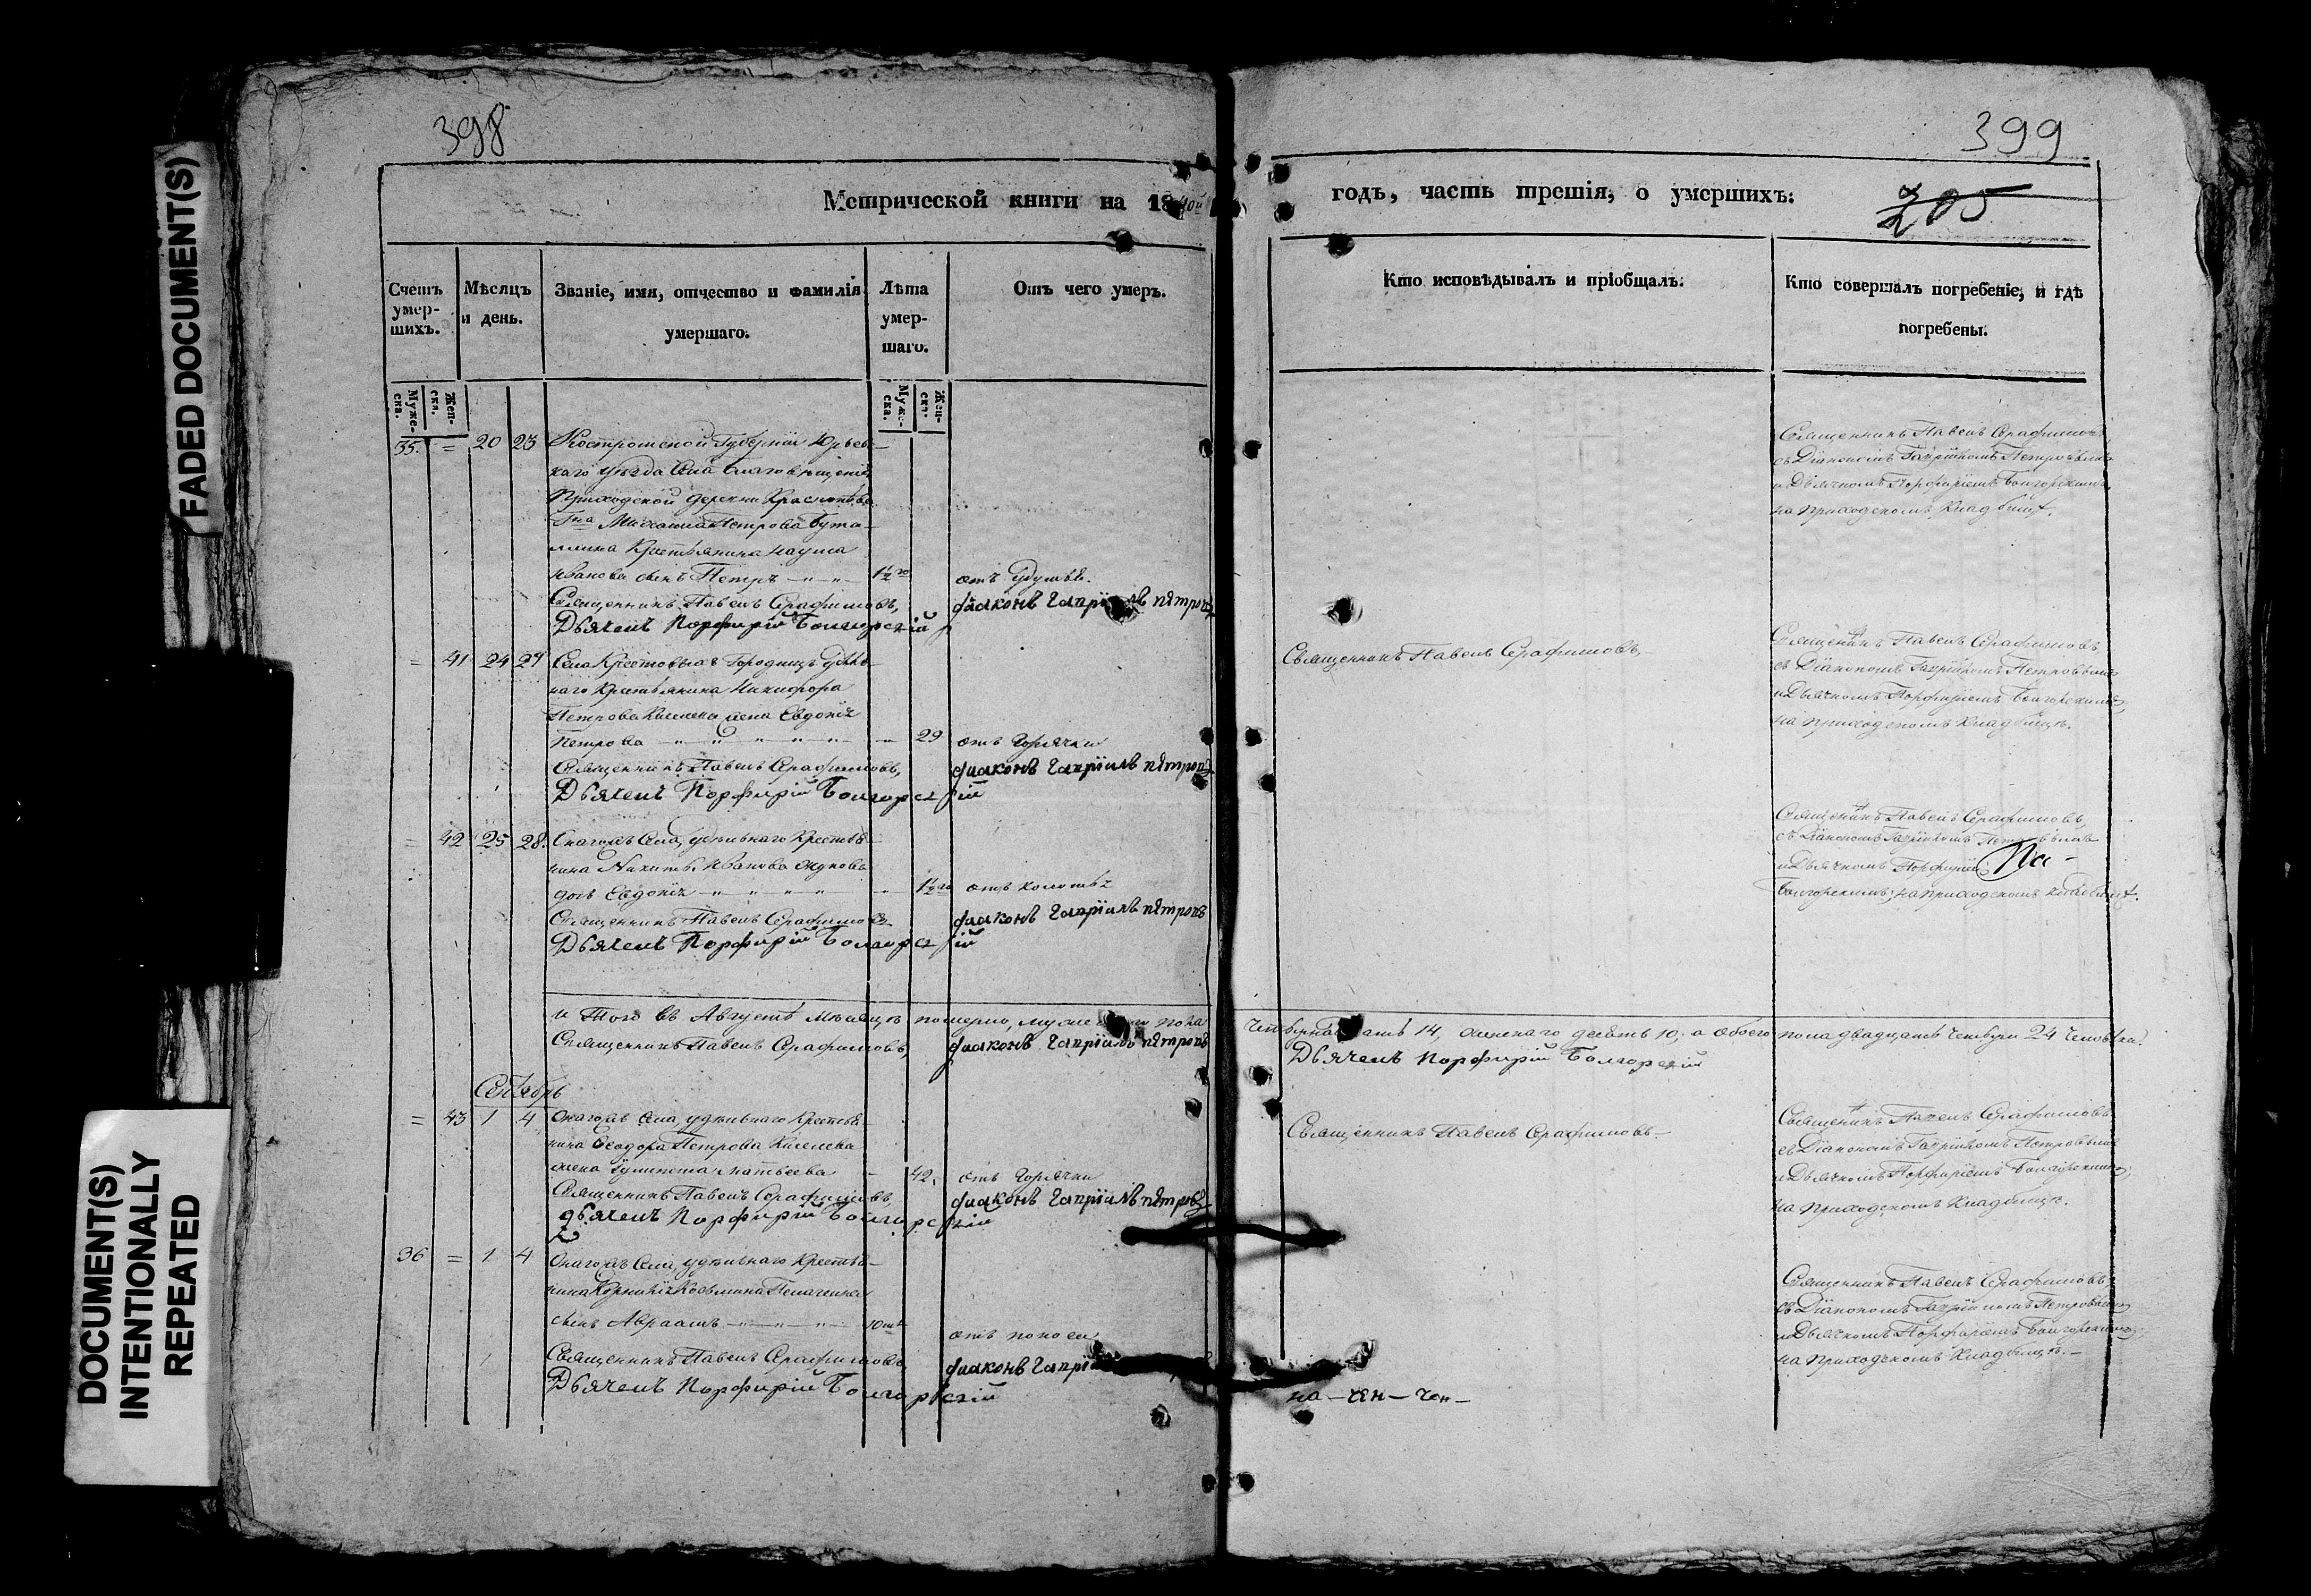 FADED DOCUMENT(S)
DOCUMENT(S)
INTENTIONALLY
REPEATED
398
Метрической книги на 1840й
Счетъ умер-шихъ.
Мѣсяцъ и день.
Званіе, имя, отчество и фамилія умершаго.
Лѣта умер-шаго.
Отъ чего умеръ.
Муже-ска.
Жен-ска.
Муже-ска.
Жен-ска.
35. = 20 23 Костромской Губерніи Юрьев-
каго уѣзда села Благовѣщенія
Приходской деревни
Гна Михаила Петрова Бута-
Крестьянина Наума
Иванова сынъ Петръ 1½го отъ удушья.
Священникъ Павелъ Серафимовъ, діаконъ Гавріилъ Петровъ
Дьячекъ Порфирій Болгорскій
= 41 24 27 Села Крестовыхъ Городищъ удѣль-
наго крестьянина Никифора
Петрова Киселева жена Евдокія
Петрова 29 отъ горячки
Священникъ Павелъ Серафимовъ, діаконъ Гавріилъ Петровъ
Дьячекъ Порфирій Болгорскій
= 42 25 28. Онагожъ села, удѣльнаго крестья-
нина Никиты Иванова Жукова
дочь Евдокія 1½го отъ колотья
Священникъ Павелъ Серафимовъ діаконъ Гавріилъ Петровъ
Дьячекъ Порфирій Болгорскій
и Того въ Августѣ мѣсяцѣ померло, мужескаго пола
Священникъ Павелъ Серафимовъ, діаконъ Гавріилъ Петровъ
Сентябрь
= 43 1 4 Онагожъ села, удѣльнаго крестья-
нина Ѳеодора Петрова Киселева
жена Улитета Матвеева 42. отъ горячки
Священникъ Павелъ Серафимовъ, діаконъ Гавріилъ Петровъ
дьячекъ Порфирій Болгорскій
36 = 1 4 Онагожъ села, удѣльнаго крестья-
нина Корнилія Козьмина
сынъ Авраамъ отъ поноса
Священникъ Павелъ Серафимовъ, діаконъ
Дьячекъ Порфирій Болгорскій
399
годъ, часть третія, о умершихъ:
205
Кто исповѣдывалъ и пріобщалъ.
Кто совершалъ погребеніе, и гдѣ погребены.
Священникъ Павелъ Серафимовъ,
съ Діакономъ Гавріиломъ Петровымъ
и Дьячкомъ Порфиріемъ Болгорскимъ,
на приходскомъ кладбищѣ.
Священникъ Павелъ Серафимовъ,
Священникъ Павелъ Серафимовъ,
съ Діакономъ Гавріиломъ Петровымъ
и Дьячкомъ Порфиріемъ Болгорскимъ,
на приходскомъ кладбищѣ.
Священникъ Павелъ Серафимовъ,
съ Діакономъ Гавріиломъ Петровымъ
и Дьячкомъ Порфиріемъ
Болгорскимъ, на приходскомъ кладбищѣ.
четырнадцать 14, женскаго десять 10, а обоего пола двадцать четыре 24 человѣка.
Дьячекъ Порфирій Болгорскій
Священникъ Павелъ Серафимовъ.
Священникъ Павелъ Серафимовъ
съ Діакономъ Гавріиломъ Петровымъ
и Дьячкомъ Порфиріемъ Болгорскимъ,
на приходскомъ кладбищѣ.
Священникъ Павелъ Серафимовъ,
съ Діакономъ Гавріиломъ Петровымъ
и Дьячкомъ Порфиріемъ Болгорскимъ,
на приходскомъ кладбищѣ.